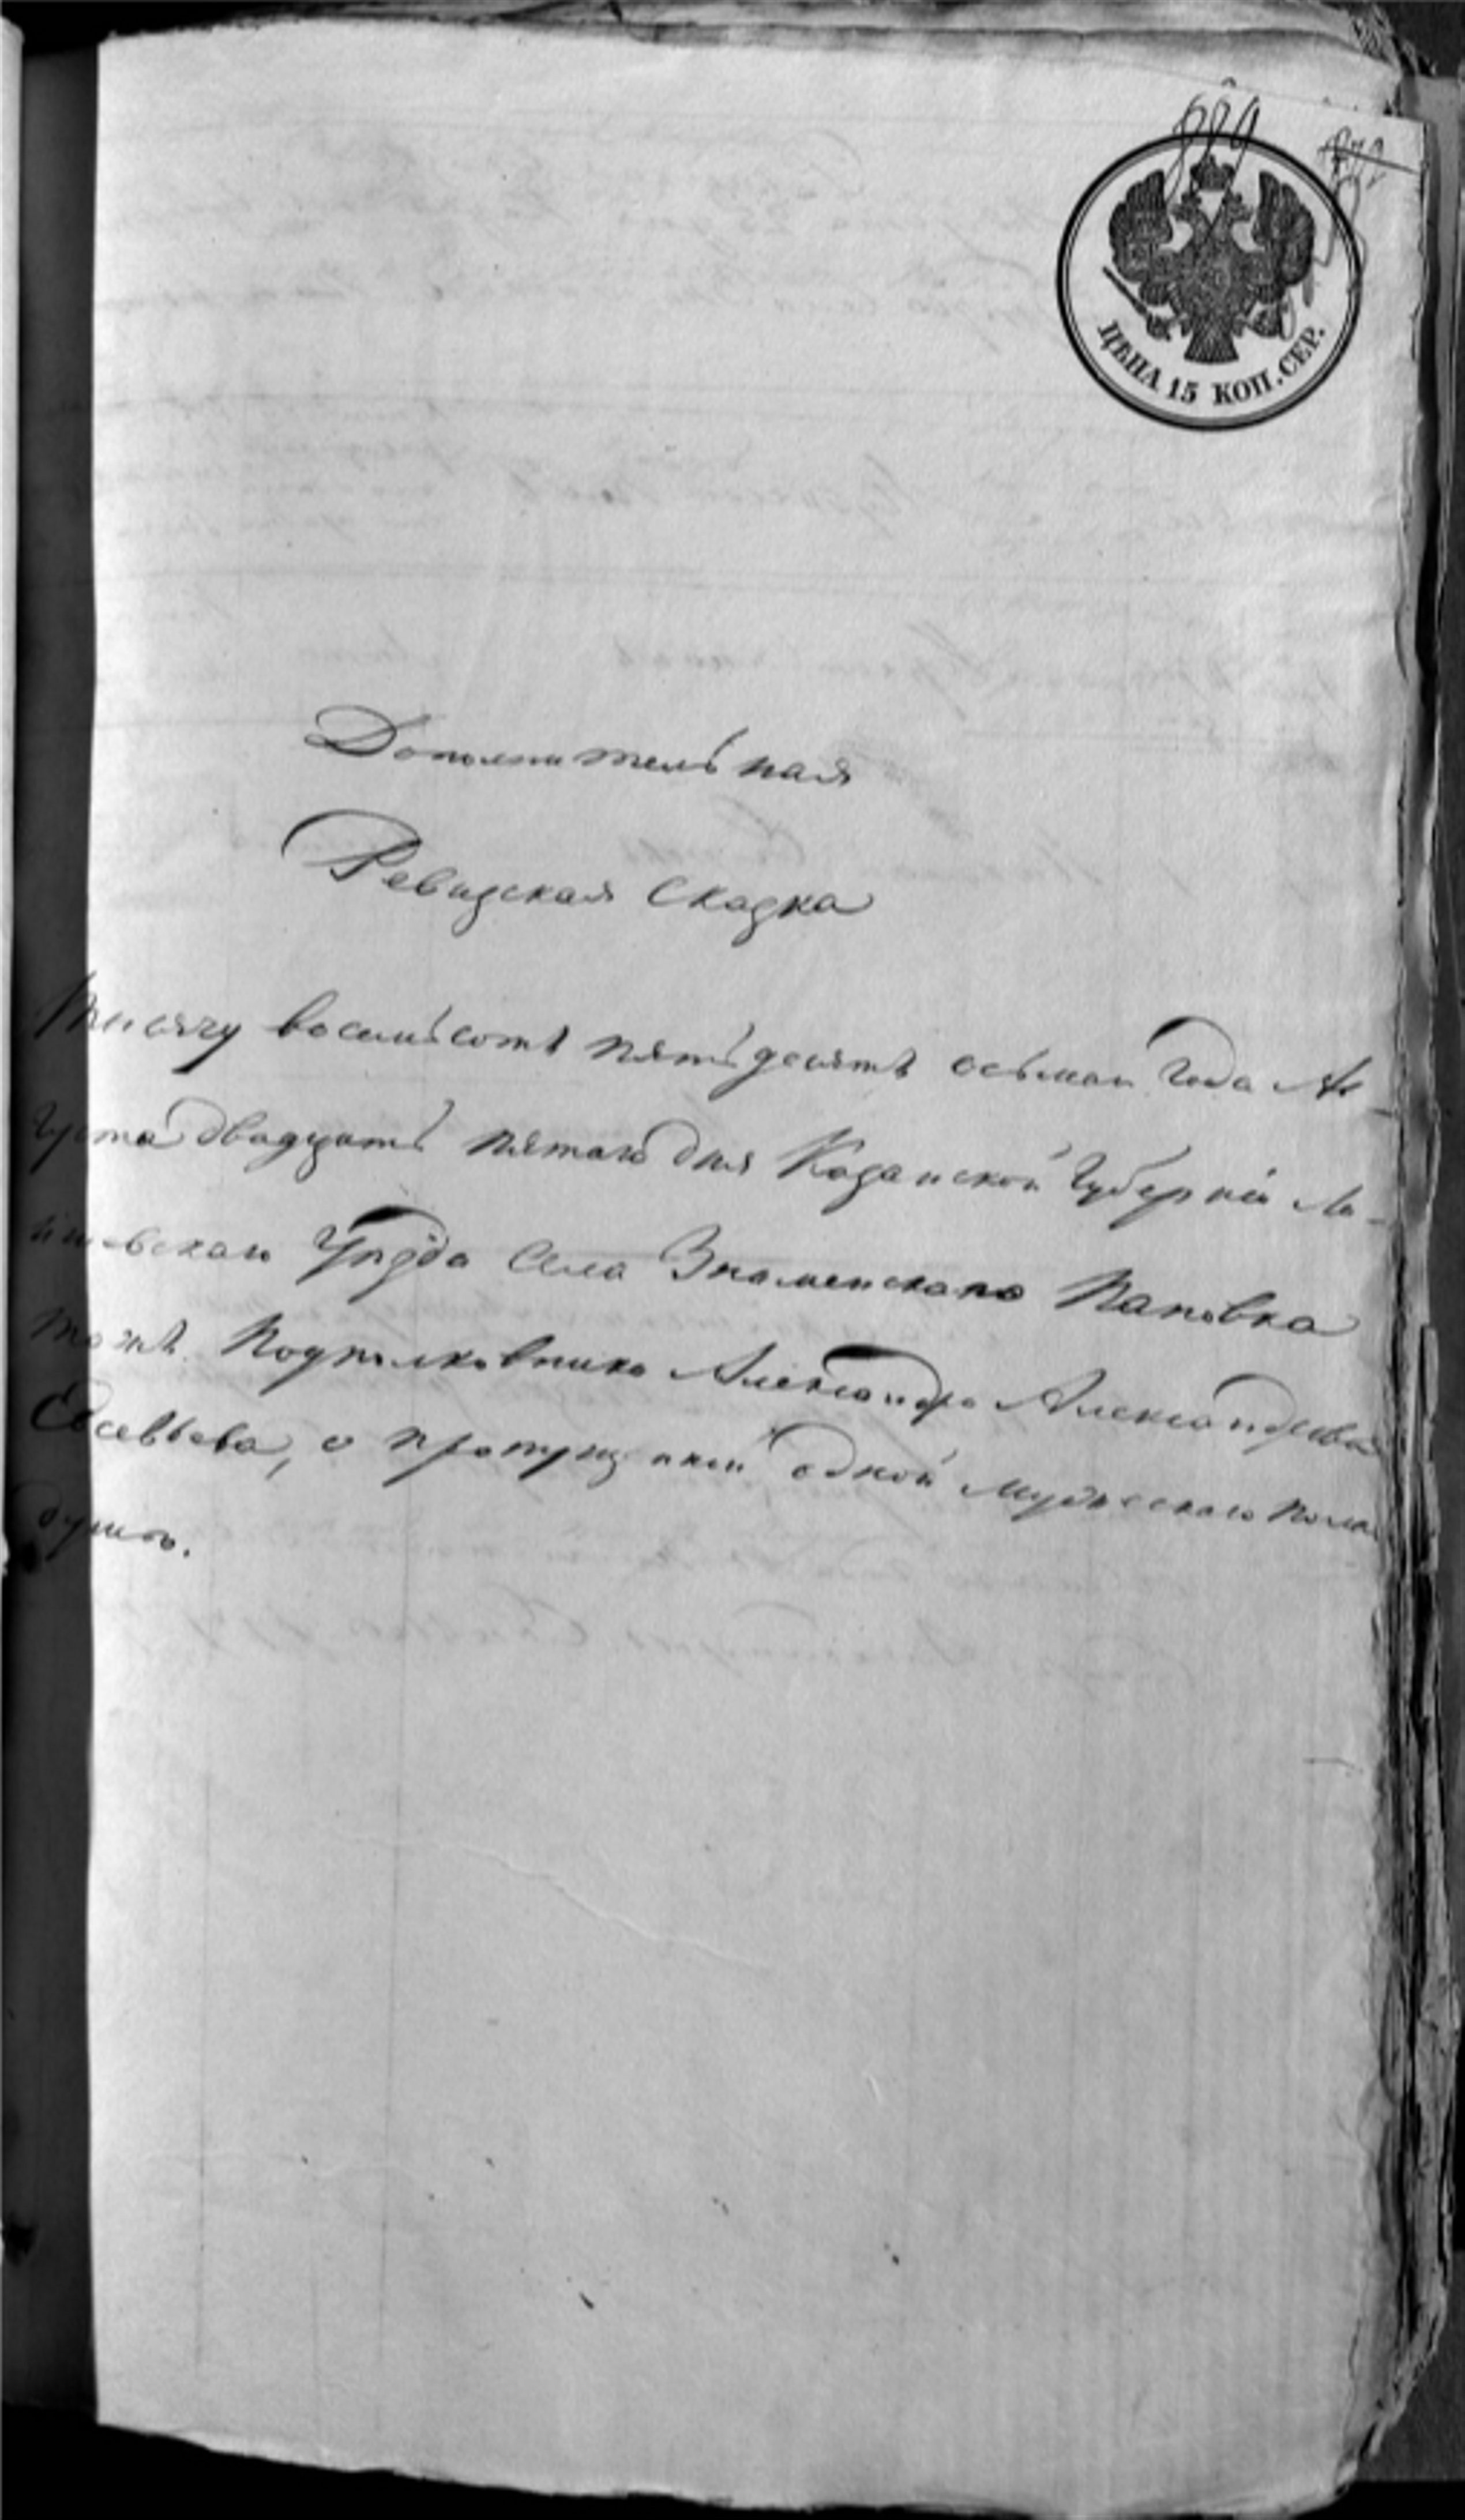 889
ЦѢНА 15 КОП. СЕР.
Дополнительная
Ревизская Сказка
Тысячу восемьсотъ пятьдесятъ осьмаго Года Ав-
густа двадцать пятаго дня Казанской Губерніи Ла-
ишевскаго Уѣзда Села Знаменскаго Паповка
тожъ Подполковника Александра Александрова
Евсевьева, о пропущенной одной мужескаго пола
души.